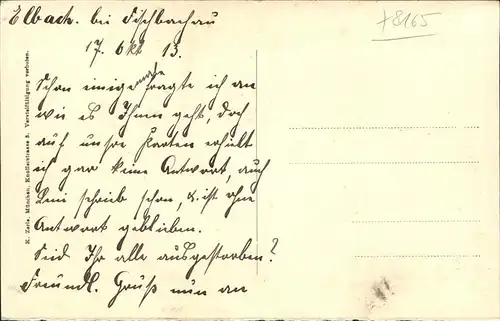 Elbach. bei Fischbachau
+8165
17. Okt. 13.
Schon einige mal fragte ich an
wie es Ihnen geht, doch
auf unsre Karten erhielt
ich gar keine Antwort, auch
Leni schrieb schon, u. ist ohne
Antwort geblieben.
Seid Ihr alle ausgestorben?
Freundl. Gruß nun an
K. Zerle, München, Kaulbachstrasse 3. Vervielfältigung verboten.